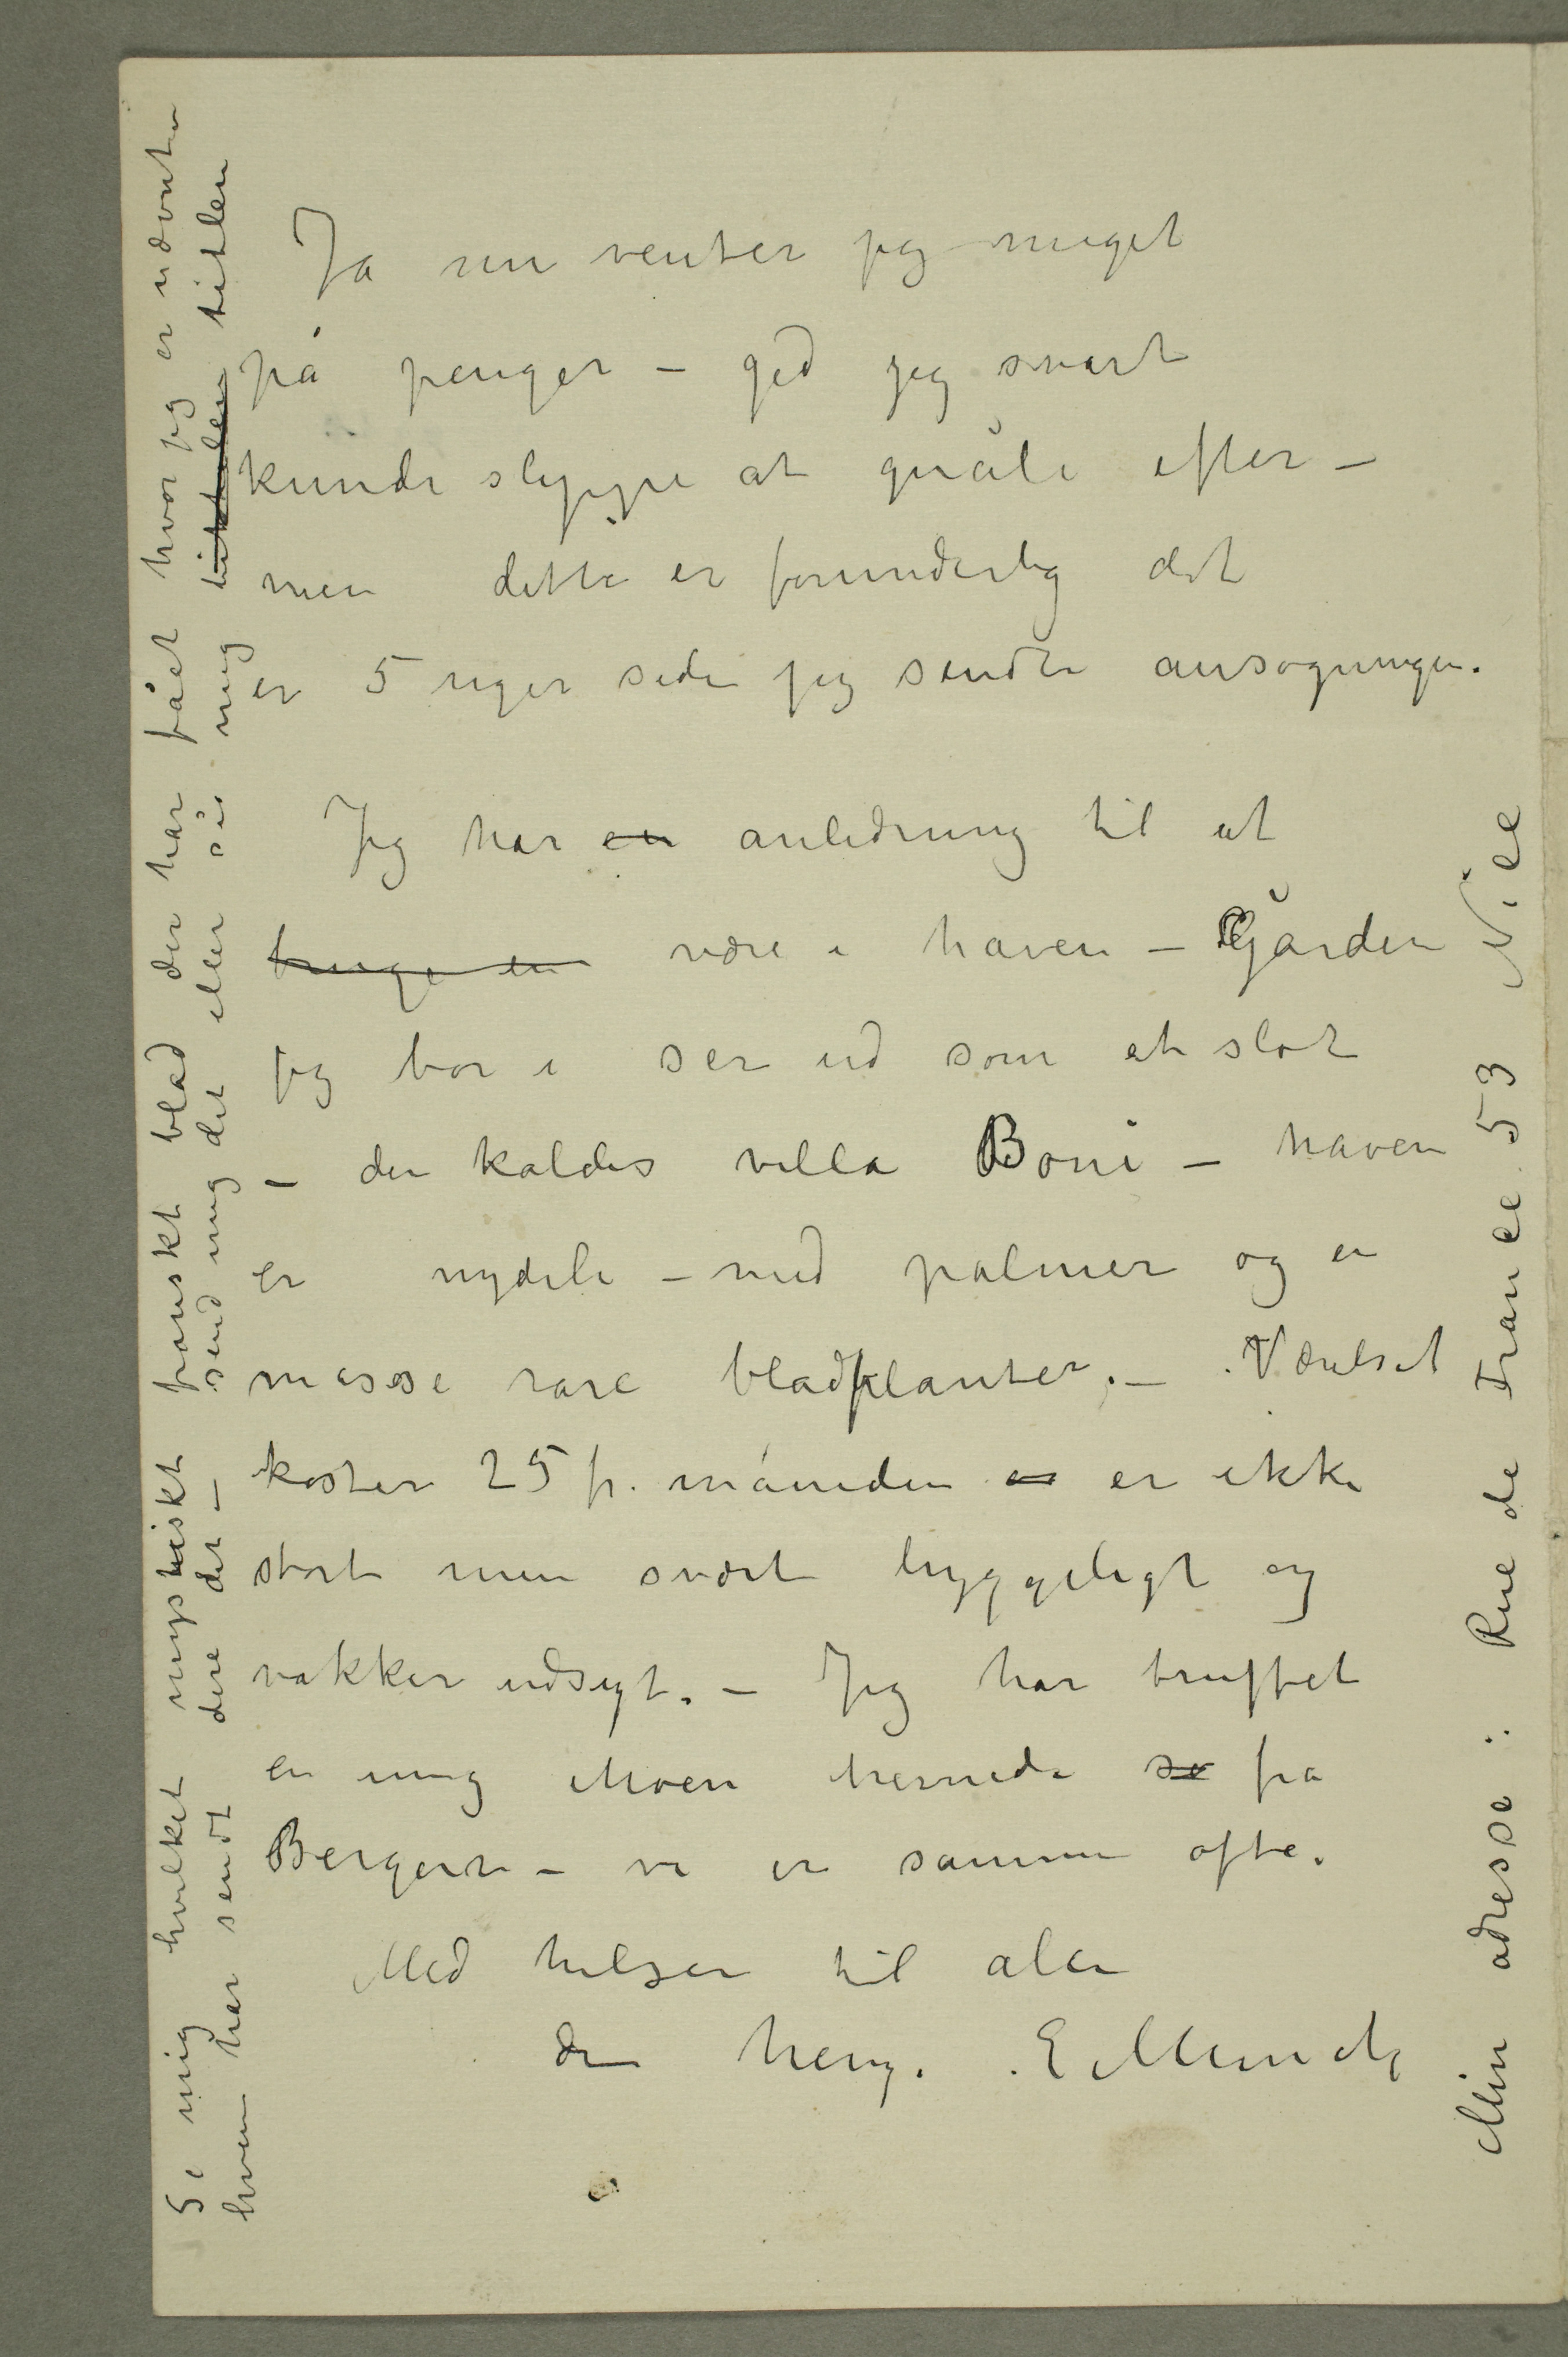 Ja nu venter jeg meget
på penger – gid jeg snart
kunde slyppe at gnåle efter –
men dette er forunderlig det
er 5 uger siden jeg sendte ansøgningen.
Jeg har en anledning til at
bruge en være i haven – Gården
jeg bor i ser ud som et slot
– den kaldes villa Boni – haven
er nydeli – med palmer og en
masse rare bladplanter. – Værelset
koster 25 fr. måneden er ikke
stort men svært hyggeligt og
vakker udsigt. – Jeg har truffet
en ung Moen hernede se fra
Bergen – vi er sammen ofte.
Med hilsen til alle
din heng. E Munch
Si mig hvilket mystiskt franskt blad der har fået hvor jeg er nævnt –
hvem har sendt dere det – send mig det eller si mig titelen titlen
Min adresse: Rue de France 53 Nice